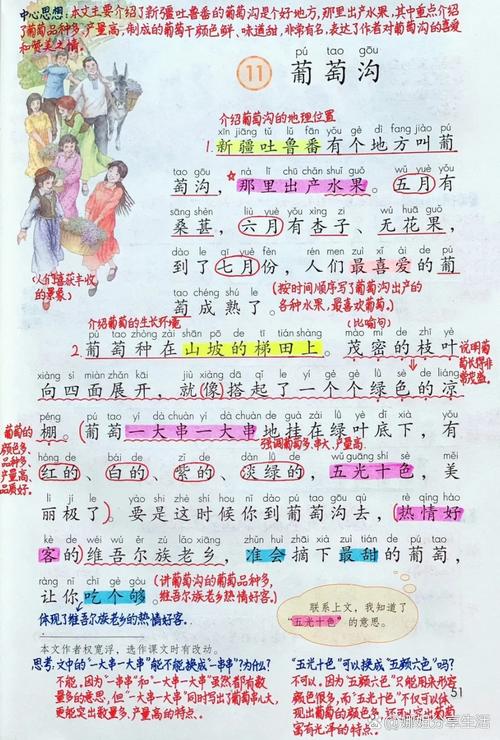 中心思想：本文主要介绍了新疆吐鲁番的葡萄沟是个好地方，那里出产水果，其中重点介绍
了葡萄品种多、产量高，制成的葡萄干颜色鲜、味道甜，非常有名，表达了作者对葡萄沟的喜爱
和赞美之情。
pú tao gōu
11 葡萄沟
介绍葡萄沟的地理位置
xīn jiāng tǔ lǔ fān yǒu gè dì fang jiào pú
1. 新疆吐鲁番有个地方叫葡
tao gōu nà lǐ chū chǎn shuǐ guǒ wǔ yuè yǒu
萄沟，那里出产水果。五月有
sāng shèn liù yuè yǒu xìng zi wú huā guǒ
桑葚，六月有杏子、无花果，
dào le qī yuè fèn rén men zuì xǐ ài de pú
到了七月份，人们最喜爱的葡
tao chéng shú le
萄成熟了。
(人们喜获丰收
的景象)
(按时间顺序写了葡萄沟出产的
各种水果，最喜欢葡萄。)
介绍葡萄的生长环境
(比喻句)
pú tao zhòng zài shān pō de tī tián shàng mào mì de zhī yè
2. 葡萄种在山坡的梯田上。茂密的枝叶
说明葡
萄长得非
常茂盛。
xiàng sì miàn zhǎn kāi jiù xiàng dā qǐ le yí gè gè lǜ sè de liáng
向四面展开，就(像)搭起了一个个绿色的凉
péng pú tao yí dà chuàn yí dà chuàn de guà zài lǜ yè dǐ xià yǒu
棚。葡萄一大串一大串地挂在绿叶底下，有
强调葡萄多、串大、产量高。
葡萄的
颜色多、
品种多、
产量高、
品质好。
hóng de bái de zǐ de dàn lǜ de wǔ guāng shí sè měi
红的、白的、紫的、淡绿的，五光十色，美
lì jí le yào shi zhè shí hou nǐ dào pú tao gōu qù rè qíng hào
丽极了。要是这时候你到葡萄沟去，热情好
kè de wéi wú ěr zú lǎo xiāng zhǔn huì zhāi xià zuì tián de pú tao
客的维吾尔族老乡，准会摘下最甜的葡萄，
ràng nǐ chī gè gòu
让你吃个够。
(讲葡萄沟的葡萄品种多，
维吾尔族老乡热情好客。)
体现了维吾尔族老乡的热情好客。
联系上文，我知道了
“五光十色”的意思。
本文作者权宽浮，选作课文时有改动。
思考：文中的“一大串一大串”能不能换成“一串串”？为什么？
不能，因为“一串串”和“一大串一大串”虽然都有数
量多的意思，但“一大串一大串”同时写出了葡萄串儿大，
更能突出数量多、产量高的特点。
“五光十色”可以换成“五颜六色”吗？
不可以，因为“五颜六色”只能用来形容
颜色很多，而“五光十色”不仅可以体
现出葡萄的颜色多，还可以突出葡萄
富有光泽的特点。
51